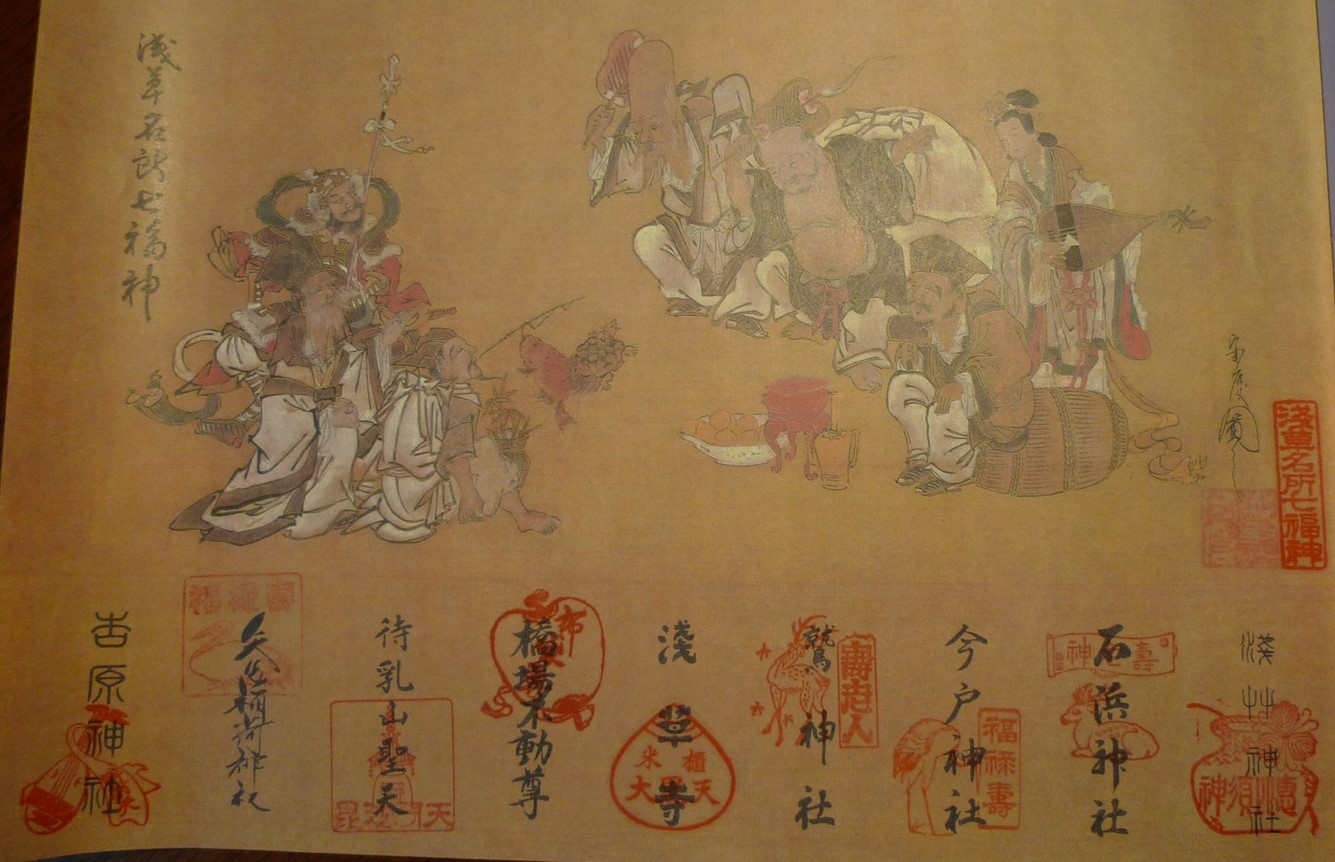 浅草名所七福神
淺艸神社
石浜神社
今戸神社
福禄壽
鷲神社
壽老人
淺草寺
米櫃
大天
橋場不動尊
布
待乳山聖天
矢先稲荷神社
吉原神社
淺草名所七福神